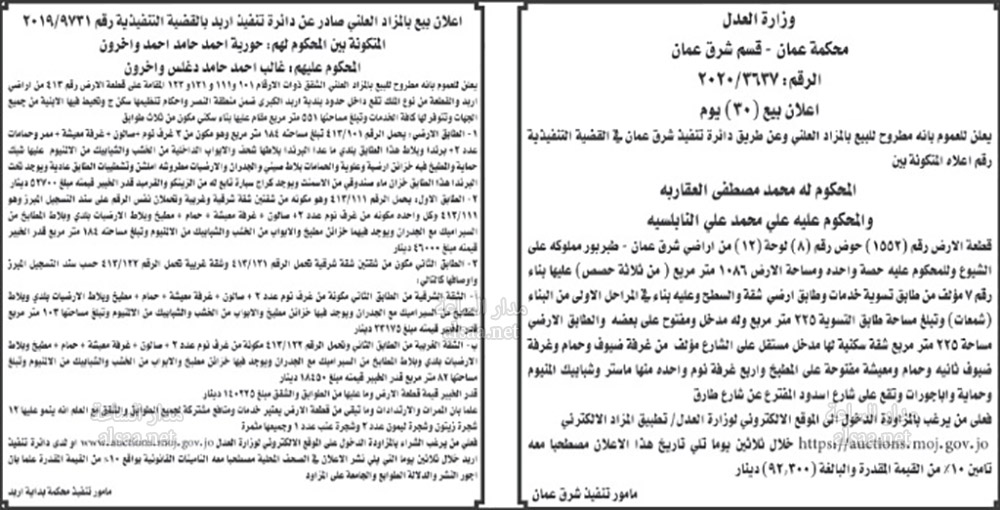 وزارة العدل
محكمة عمان - قسم شرق عمان
الرقم: ٢٠٢٠/٣٦٣٧
اعلان بيع (٣٠) يوم
يعلن للعموم بانه مطروح للبيع بالمزاد العلني وعن طريق دائرة تنفيذ شرق عمان في القضية التنفيذية
رقم اعلاه المتكونة بين
المحكوم له محمد مصطفى العقاربه
والمحكوم عليه علي محمد علي النابلسيه
قطعة الارض رقم (١٥٥٢) حوض رقم (٨) لوحة (١٢) من اراضي شرق عمان - طبربور مملوكه على
الشيوع وللمحكوم عليه حصة واحده ومساحة الارض ١٠٨٦ متر مربع ( من ثلاثة حصص) عليها بناء
رقم ٧ مؤلف من طابق تسوية خدمات وطابق ارضي شقة والسطح وعليه بناء في المراحل الاولى من البناء
(شمعات) وتبلغ مساحة طابق التسوية ٢٢٥ متر مربع وله مدخل ومفتوح على بعضه والطابق الارضي
مساحة ٢٢٥ متر مربع شقة سكنية لها مدخل مستقل على الشارع مؤلف من غرفة ضيوف وحمام وغرفة
ضيوف ثانيه وحمام ومعيشة مفتوحة على المطبخ واربع غرفة نوم واحده منها ماستر وشبابيك المنيوم
وحماية واباجورات وتقع على شارع اسدود المفترع عن شارع طارق
فعلى من يرغب بالمزاودة الدخول الى الموقع الالكتروني لوزارة العدل/ تطبيق المزاد الالكتروني
https://auctions.moj.gov.jo خلال ثلاثين يوما تلي تاريخ هذا الاعلان مصطحبا معه
تامين ١٠٪ من القيمة المقدرة والبالغة (٩٢,٣٠٠) دينار
مامور تنفيذ شرق عمان
اعلان بيع بالمزاد العلني صادر عن دائرة تنفيذ اربد بالقضية التنفيذية رقم ٢٠١٩/٩٧٣١
المتكونة بين المحكوم لهم: حورية احمد حامد احمد واخرون
المحكوم عليهم: غالب احمد حامد دغلس واخرون
يعلن للعموم بانه مطروح للبيع بالمزاد العلني الشقق ذوات الارقام ١٠١ و١١١ و١٢١ و١٢٢ المقامة على قطعة الارض رقم ٤١٣ من اراضي
اربد والقطعة من نوع الملك تقع داخل حدود بلدية اربد الكبرى ضمن منطقة النصر واحكام تنظيمها سكن ج وتحيط فيها الابنية من جميع
الجهات وتتوفر لها كافة الخدمات وتبلغ مساحتها ٥٥١ متر مربع مقام عليها بناء سكني مكون من ثلاث طوابق
١- الطابق الارضي: يحمل الرقم ٤١٣/١٠١ تبلغ مساحته ١٨٤ متر مربع وهو مكون من ٣ غرف نوم +صالون + غرفة معيشة + ممر وحمامات
عدد ٢+ برندا وبلاط هذا الطابق بلدي ما عدا البرندا بلاطها شحف والابواب الداخلية من الخشب والشبابيك من الالمنيوم عليها شبك
حماية والمطبخ فيه خزائن ارضية وعلوية والحمامات بلاط صيني والجدران والارضيات مطروشه املشن وتشطيبات الطابق عادية ويوجد تحت
البرندا هذا الطابق خزان ماء صندوقي من الاسمنت ويوجد كراج سيارة تابع له من الزينكو والقرميد قدر الخبير قيمته مبلغ ٥٢٧٠٠ دينار
٢- الطابق الاول: يحمل الرقم ٤١٣/١١١ وهو مكونه من شقتين شقة شرقية وغربية وتحملان نفس الرقم على سند التسجيل المبرز وهو
٤١٣/١١١ وكل واحده مكونه من غرف نوم عدد ٢+ صالون + غرفة معيشة + حمام + مطبخ وبلاط الارضيات بلدي وبلاط المطابخ من
السيراميك مع الجدران ويوجد فيهما خزائن مطبخ والابواب من الخشب والشبابيك من الالمنيوم وتبلغ مساحته ١٨٤ متر مربع قدر الخبير
قيمته مبلغ ٤٦٠٠٠ دينار
٣- الطابق الثاني مكون من شقتين شقة شرقية تحمل الرقم ٤١٣/١٢١ وشقة غربية تحمل الرقم ٤١٣/١٢٢ حسب سند التسجيل المبرز
واوصافها كالتالي:
١- الشقة الشرقية من الطابق الثاني مكونة من غرف نوم عدد ٢ + صالون + غرفة معيشة + حمام + مطبخ وبلاط الارضيات بلدي وبلاط
المطابخ من السيراميك مع الجدران ويوجد فيها خزائن مطبخ والابواب من الخشب والشبابيك من الالمنيوم وتبلغ مساحتها ١٠٣ متر مربع
قدر الخبير قيمته مبلغ ٢٣١٧٥ دينار
٢- الشقة الغربية من الطابق الثاني وتحمل الرقم ٤١٣/١٢٢ مكونة من غرف نوم عدد ٢ + صالون + غرفة معيشة + حمام + مطبخ وبلاط
الارضيات بلدي وبلاط المطابخ من السيراميك مع الجدران ويوجد فيها خزائن مطبخ والابواب من الخشب والشبابيك من الالمنيوم وتبلغ
مساحتها ٨٢ متر مربع قدر الخبير قيمته مبلغ ١٨٤٥٠ دينار
قدر الخبير قيمة قطعة الارض وما عليها من الطوابق والشقق مبلغ ١٤٠٣٢٥ دينار
علما بان الممرات والارتدادات وما تبقى من قطعة الارض يعتبر خدمات ومنافع مشتركة لجميع الطوابق والشقق مع العلم انه ينمو عليها ١٢
شجرة زيتون وشجرة ليمون عدد ٢ وشجرة عنب عدد ١ وجميعها مثمرة
فعلى من يرغب الشراء بالمزاودة الدخول على الموقع الالكتروني لوزارة العدل www.auctions.moj.gov.jo او لدى دائرة تنفيذ
اربد خلال ثلاثين يوما التي يلي نشر الاعلان في الصحف المحلية مصطحبا معه التامينات القانونية بواقع ١٠٪ من القيمة المقدرة علما بان
اجور النشر والدلالة الطوابع والجامعة على المزاود
مامور تنفيذ محكمة بداية اربد
مدار الساعة
alsaa.net